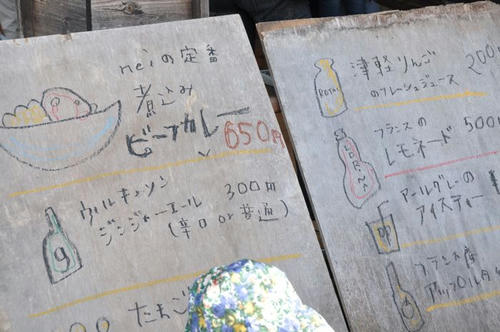 neiの定番
煮込み
ビーフカレー
650円
ウィルキンソン
ジンジャーエール
300円
(辛口or普通)
g
たまご
津軽りんご
のフレッシュジュース
200
フランスの
レモネード
500円
LORINA
アールグレーの
アイスティー
フランス産
アップル